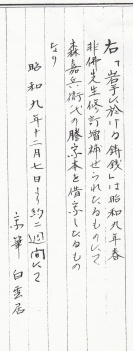 右「岩手に於ける鋳銭」は昭和九年春
非佛先生修訂増補せられたるものにて
森嘉兵衛氏の謄写本を借写したるもの
なり
昭和九年十二月七日より約二週間にて
京華 白雲居